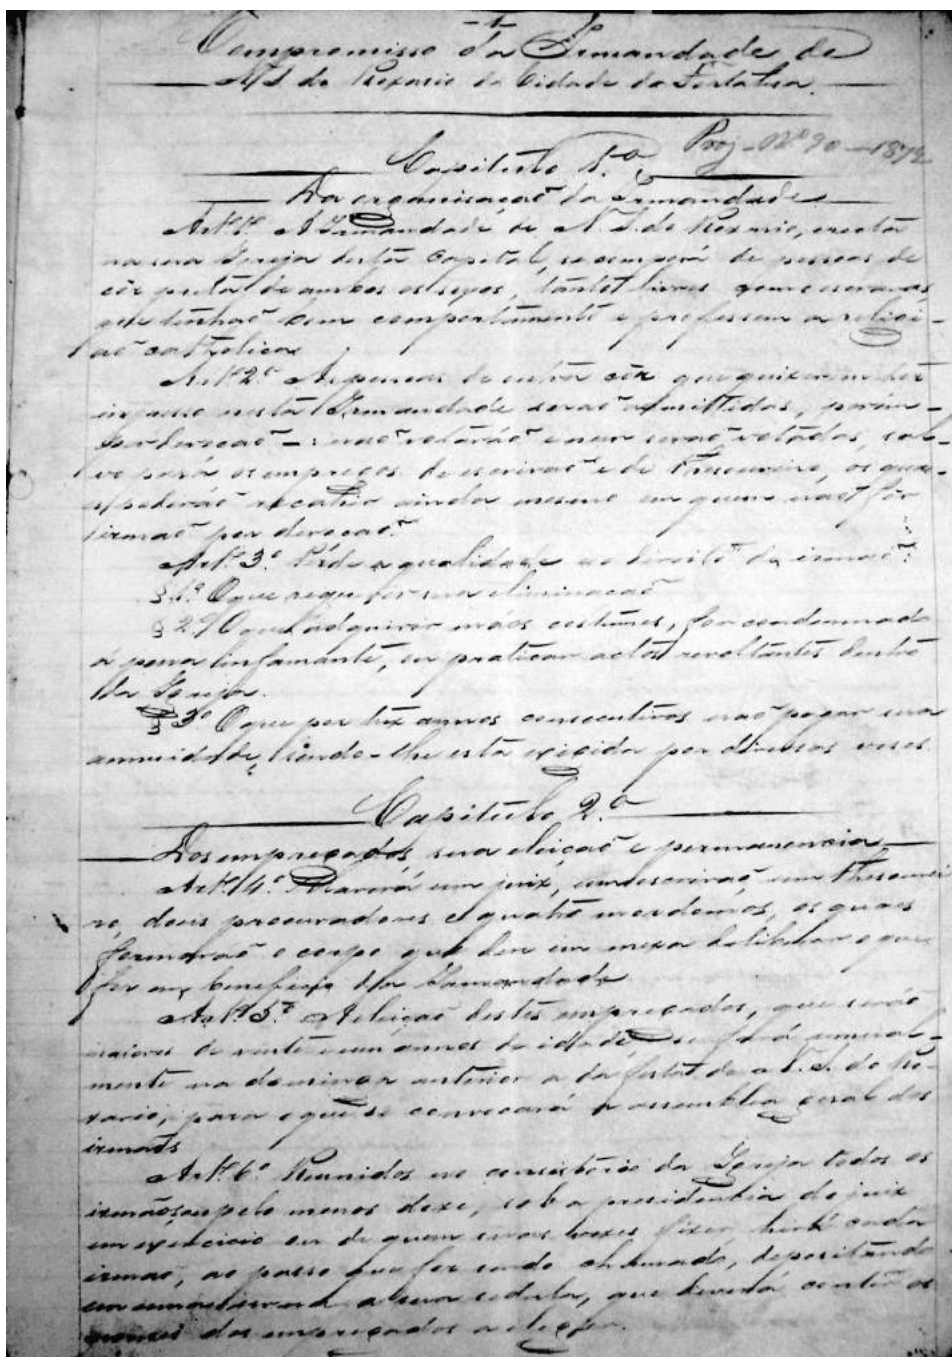 -1-
Compromisso da Irmandade de
N S do Rozario da Cidade da Fortalesa.
Proj. Nº 90 - 1872
Capitulo 1.º
Da organisação da Irmandade
Art. 1º A Irmandade de N. S. do Rozario, erecta
na sua Igreja desta Capital, se comporá de pessoas de
côr preta de ambos os sexos, tanto livres como escravos,
que tenhaõ bom comportamento e professem a religi-
aõ catholica
Art. 2.º As pessoas de outra côr que quizerem ter
ingresso nesta Irmandade seraõ admittidas, porém
por devoçaõ - : naõ votaráõ e nem seraõ votados, sal-
vo para os empregos de escrivaõ e de Thesoureiro, os quaes
poderáõ recahir ainda mesmo em quem naõ fôr
irmaõ por devoçaõ.
Art. 3.º Pérde a qualidade e o direito de irmaõ:
§ 1.º O que requerer sua eliminaçaõ
§ 2º O que adquirir máos costumes, for condemnado
á pena infamante, ou praticar actos revoltantes dentro
da Igreja.
§ 3º O que por tres annos consecutivos naõ pagar sua
annuidade, sendo-lhe esta exigida por diversas veses
Capitulo 2.º
Dos empregados, sua eleiçaõ e permanencia
Art. 4.º Haverá um juiz, um escrivaõ, um Thesourei
ro, dous procuradores e quatro mordomos, os quaes
formaraõ o corpo que em meza deliberar o que
for em beneficio da Irmandade
Art. 5.º A eleiçaõ destes empregados, que seraõ
maiores de vinte e um annos de idade, se fará annual-
mente na dominga anterior a da festa de N. S. do Ro-
zario, para o que se convocará a assemblea geral dos
irmaõs
Art. 6.º Reunidos no consistorio da Igreja todos os
irmãos, ou pelo menos doze, sob a presidencia do juiz
em exercicio ou de quem suas vezes fizer, cada
irmaõ, ao passo que for sendo chamado, depositando
em uma a sua cedula, que deverá conter os
nomes dos empregados a eleger.